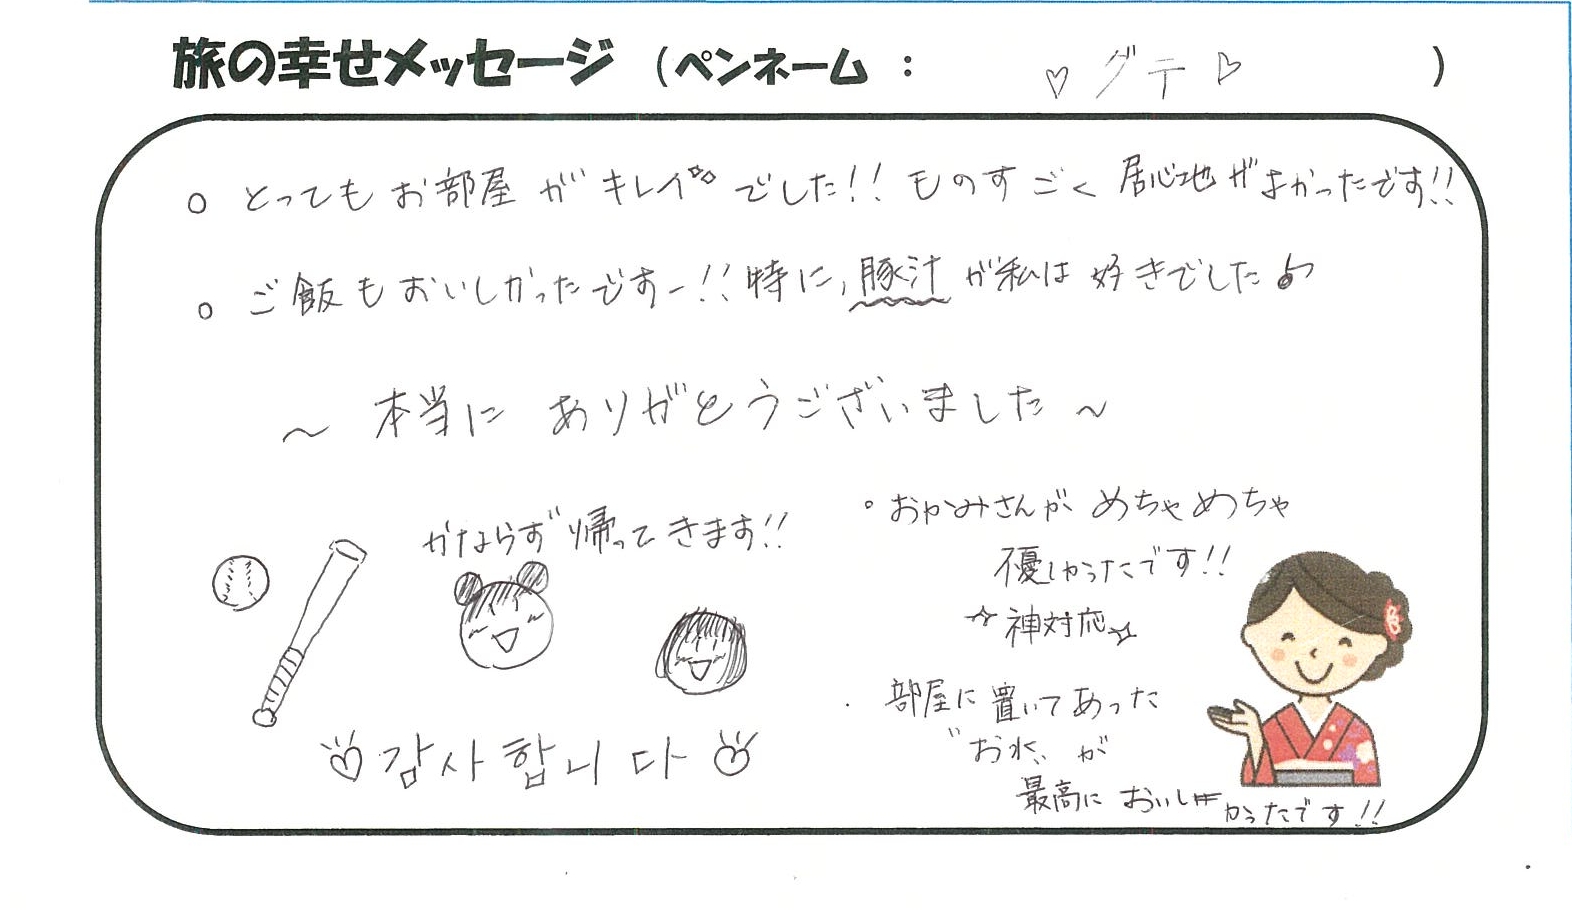 旅の幸せメッセージ (ペンネーム : ♡グテ♡ )
○ とってもお部屋がキレイでした!! ものすごく居心地がよかったです!!
○ ご飯もおいしかったですー!! 特に、豚汁が私は好きでした♪
~ 本当に ありがとうございました ~
かならず帰ってきます!!
♡감사합니다♡
・おかみさんが めちゃめちゃ
優しかったです!!
☆神対応☆
・部屋に置いてあった
"お水"が
最高に おいしかったです!!